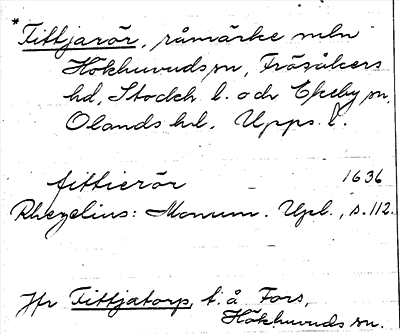 * Fittjarör, råmärke mln
Hökhuvuds sn, Frösåkers
hd, Stockh. l. och Ekeby sn,
Olands hd, Upps. l.
fittierör 1636
Rhezelius: Monum. Upl., s. 112.
Jfr Fittjatorp, t. å Fors,
Hökhuvuds sn.